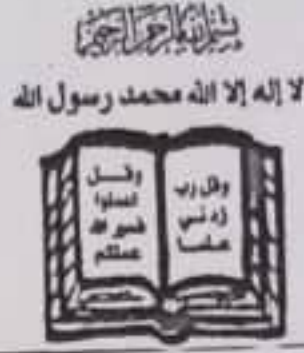 بسم الله الرحمن الرحيم
لا إله إلا الله محمد رسول الله
وقل رب
زدني
علما
وقل
اعملوا
فسير الله
عملكم